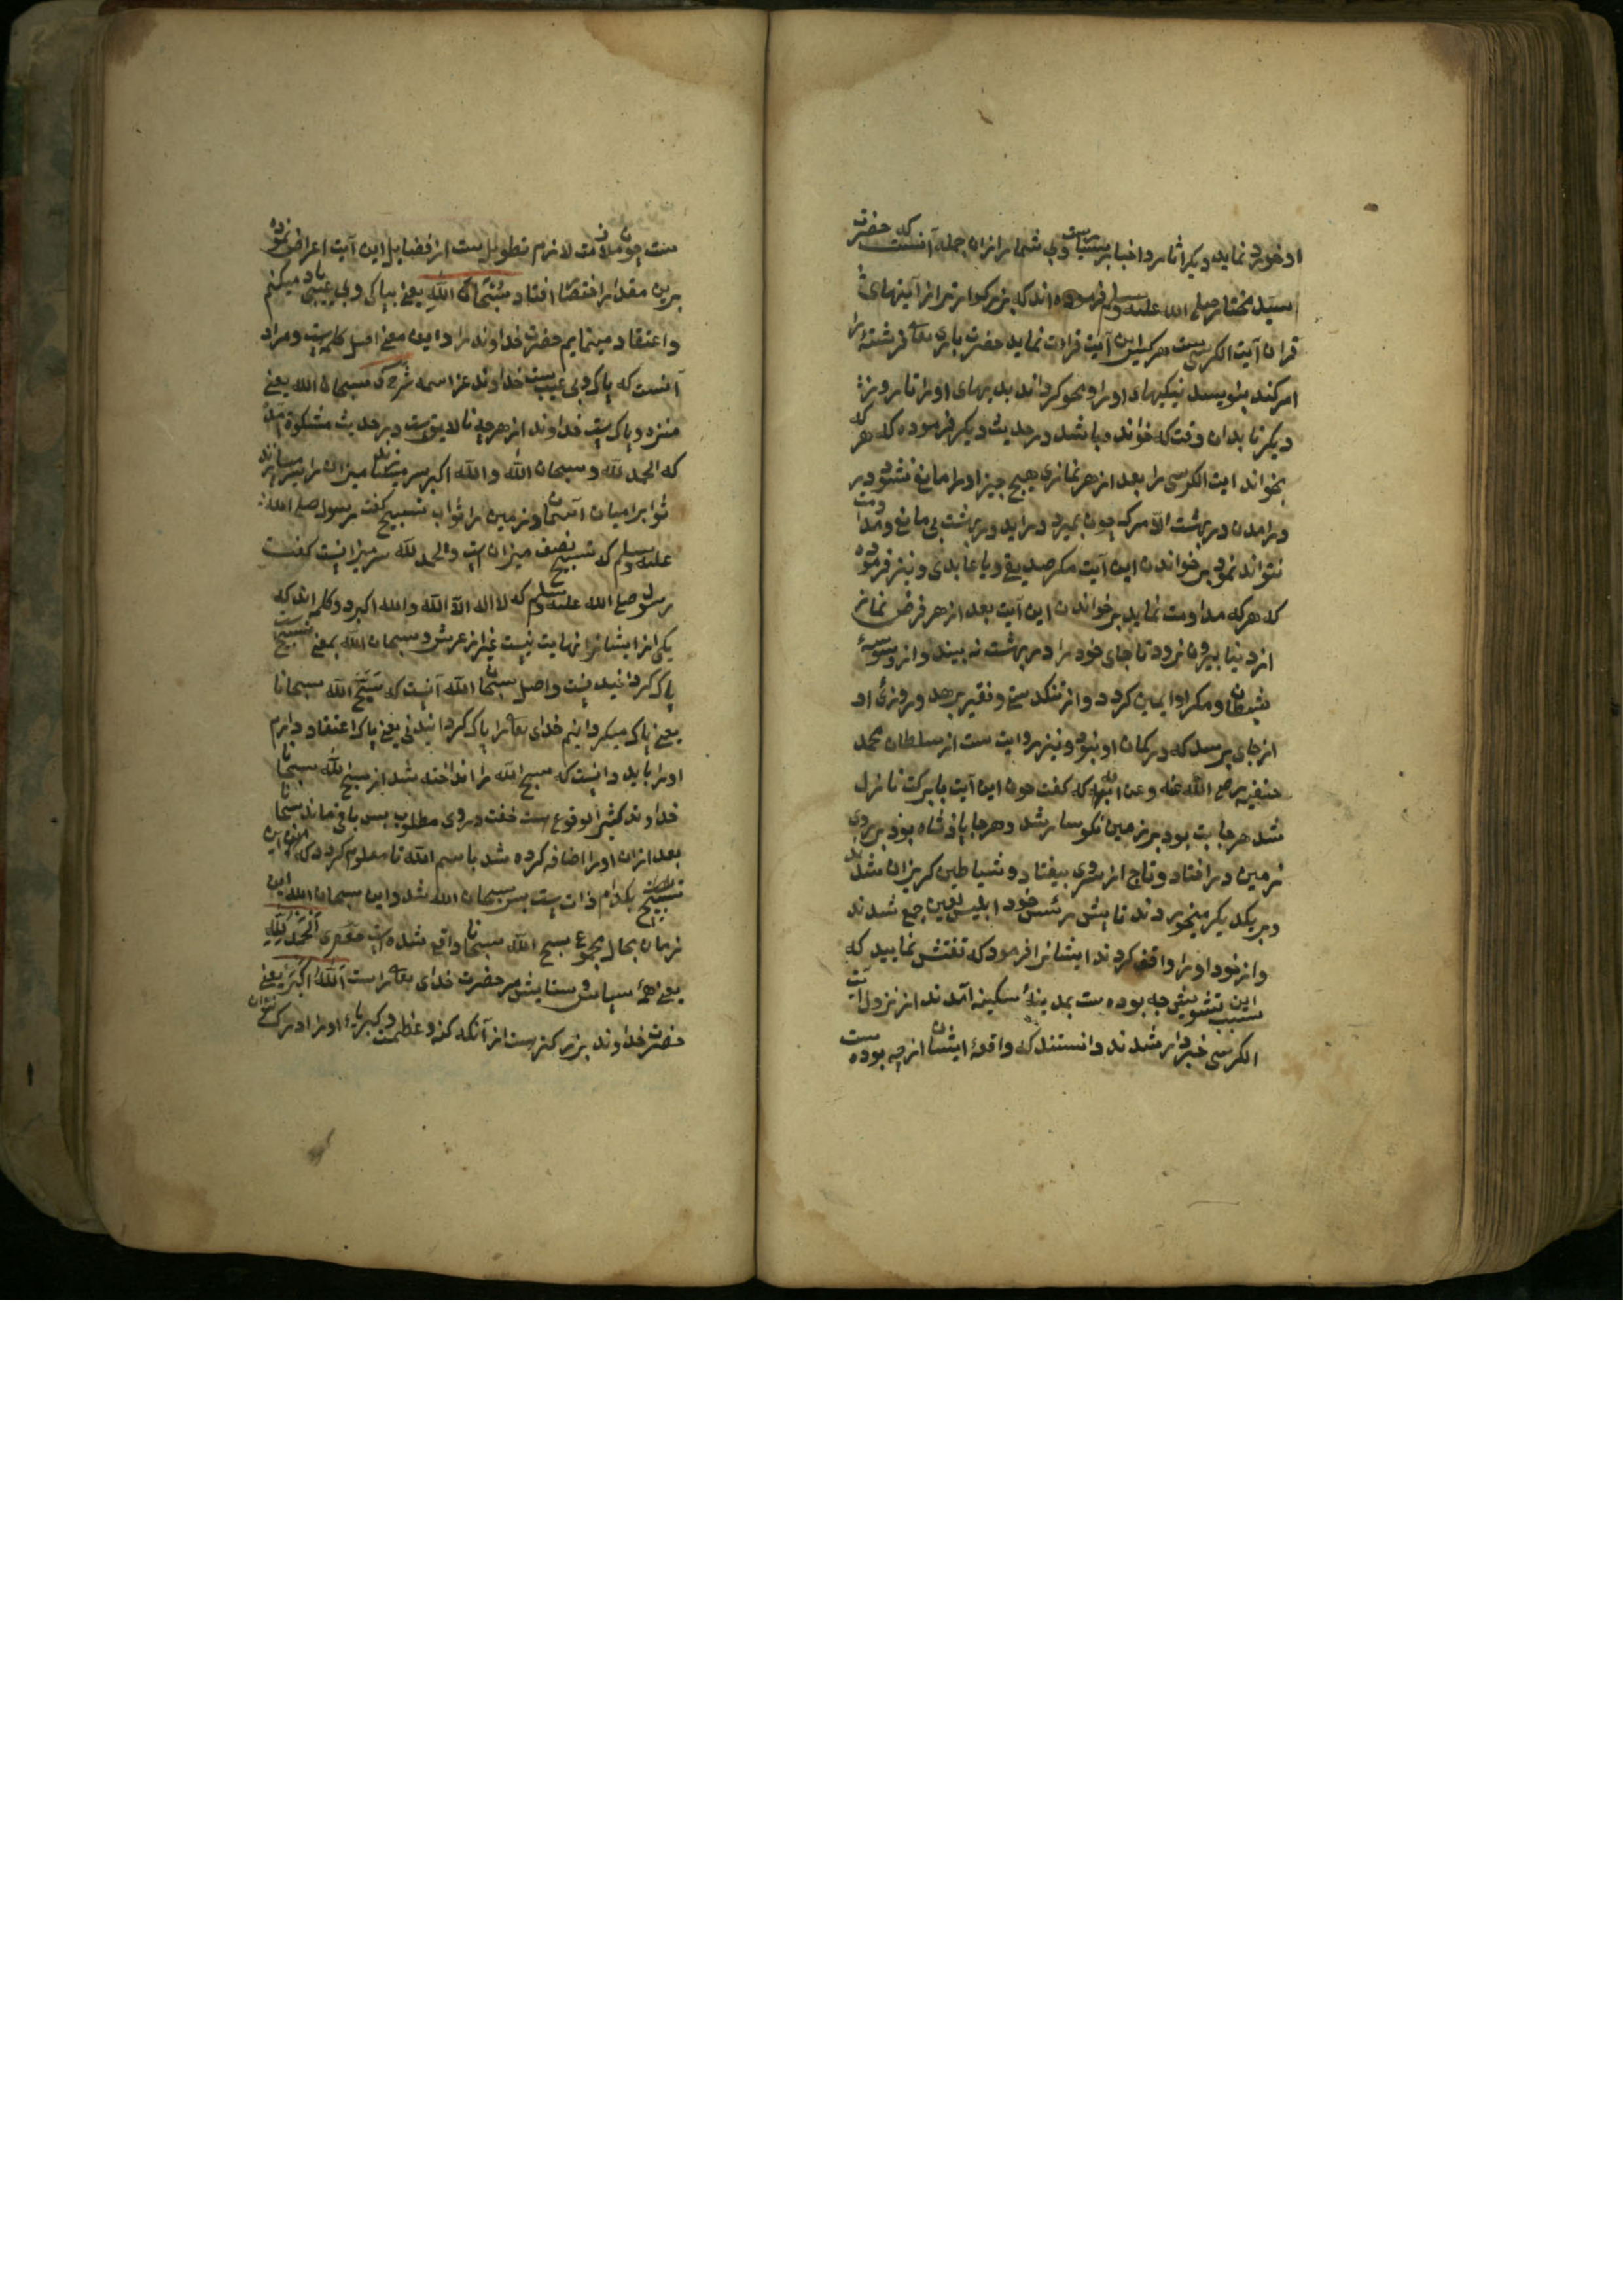 او خورد نماید دیکر اثار و اخبار بسیارست وبی شمار ازان جمله آنست که حضرت
سید مختار صلی الله علیه وسلم فرموده اند که بزرکوارتر از آیتهای
قران آیت الکرسی ست هر کس این آیت قراءت نماید حضرت باری تعالی فرشتهٔ را
امر کند بنویسد نیکیهای اورا و محو کرداند بدیهای اورا تا روز
دیکر تا بدان وقت که خوانده باشد و در حدیث دیکر فرموده که هر که
بخواند ایت الکرسی را بعد از هر نمازی هیچ چیز اورا مانع نشود در
درامدن در بهشت الا مرک چون بمیرد دراید در بهشت بی مانع و مداومت
نتواند نمود بر خواندن این آیت مکر صدیقی و یا عابدی و نیز فرموده
که هر که مداومت نماید بر خواندن این آیت بعد از هر فرض نماز
از دنیا بیرون نرود تا جای خود را در بهشت نه بیند و از وسوسهٔ
شیطان و مکر او ایمن کردد و از تنکدستی و فقیر برهد و روزیٔ او
از جای برسد که در کمان او نبود و نیز روایت ست از سلطان محمد
حنفیه رضی الله عنه وعن ابیه که کفت چون این آیت بابرکت نازل
شد هرجا بت بود بر زمین نکوسار شد و هرجا پادشاه بود بر روی
زمین در افتاد و تاج از سروی بیفتاد و شیاطین کریزان شدند
و بر یکدیکر میخوردند تا پیش رئیس خود ابلیس لعین جمع شدند
و از خود اورا واقف کردند ایشانرا فرمود که تفتش نمایید که
سبب این تشویش چه بوده ست بمدینهٔ سکینه آمدند از نزول آیت
الکرسی خبردار شدند دانستند که واقعهٔ ایشان از چه بوده ست
ست چون ملامت لازم تطویل ست از فضایل این آیت اعراض نموده
برین مقدار اختصار افتاد سُبْحَانَ اللّٰهِ یعنی بپاکی وبی عیبی یاد میکنم
و اعتقاد مینمایم حضرت خداوند را و این معنی اصل کلمه ست و مراد
آنست که پاک وبی عیب ست خداوند عز اسمه شرح سبحان الله یعنی
منزه و پاک ست خداوند از هرچه نالایق ست و در حدیث مشکوة آمده
که الحمد لله و سبحان الله و الله اکبر
ثواب میان آسمان و زمین را ثواب تسبیح کفت رسول صلی الله
علیه وسلم که تسبیح نصف میزان ست والحمد لله سر میزانست کفت
رسول صلی الله علیه وسلم که لا اله الا الله و الله اکبر دو کلمه اند که
یکی از ایشانرا نهایت نیست غیر از عرش و سبحان الله بمعنی تسبیح ست
پاک کردانیدنست و اصل سبحان الله آنست که سَبِّحِ اللّٰه سبحانا
یعنی پاک میکردانیم خدای تعالی را پاک کردانیدنی یعنی پاک اعتقاد دارم
اورا باید دانست که سبح الله را انداخته شد از سبح الله سبحانا
خداوند کثیر الوقوع ست خفت در وی مطلوب پس باقی ماند سبحانا
بعد ازان اورا اضافه کرده شد باسم الله تا معلوم کردد که این
تسبیح بکدام ذات ست پس سبحان الله شد و این سبحان الله این
زمان بجای مجموع سبح الله سبحانا واقع شده ست اَلْحَمْدُ لِلّٰهِ
یعنی همهٔ سپاس و ستایش مر حضرت خدای تعالی راست اَللّٰهُ اَکْبَرُ یعنی
حضرت خداوند بزرکترست از آنکه کنه و عظمت و کبریایٔ اورا ادراک توان